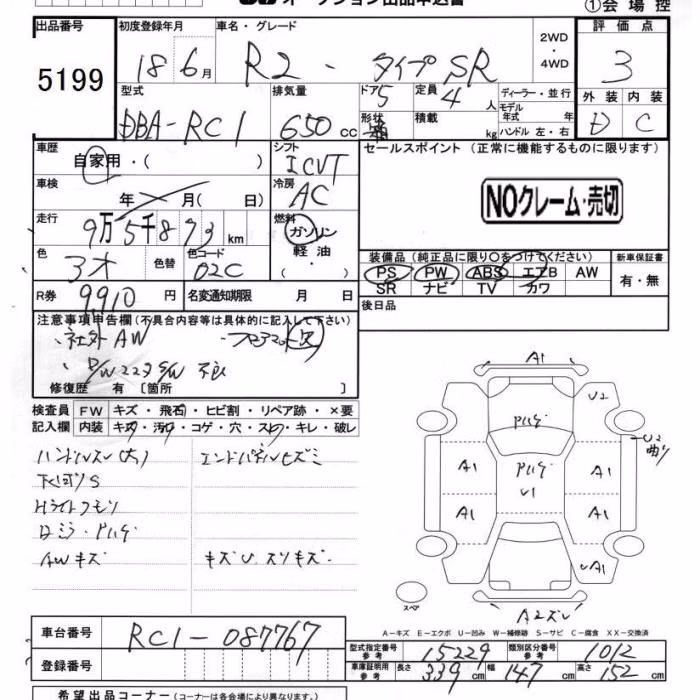 オークション出品申込書
①会場控
出品番号 初度登録年月 車名・グレード 2WD・4WD 評価点
5199 18年6月 R2 - タイプSR 3
型式 排気量 ドア 定員 ディーラー・並行 外装 内装
DBA-RC1 650cc 5 4人 D C
形状 積載 kg モデル年式 年 ハンドル 左・右
車歴 自家用・( ) シフト ICVT
セールスポイント (正常に機能するものに限ります)
車検 年 月( 日) 冷房 AC
NOクレーム・売切
走行 9万5千873km 燃料 ガソリン 軽油
色 3オ 色替 色コード 02C
装備品 (純正品に限り○をつけてください) 新車保証書
PS PW ABS エアB AW 有・無
SR ナビ TV カワ
R券 9910円 名変通知期限 月 日
後日品
注意事項申告欄 (不具合内容等は具体的に記入して下さい)
社外AW
不良
修復歴 有 [箇所 ]
検査員記入欄 FW キズ・飛石・ヒビ割・リペア跡・×要
内装 キズ・汚れ・コゲ・穴・スレ・キレ・破レ
ハンドルスレ(大)
下回りS
Hライトクモリ
AWキズ キズU、スリキズ
A1
U2
A1 A1
U1
A1 A1
U2 曲り
UA1
スペア
A2ズレ
A-キズ E-エクボ U-凹み W-補修跡 S-サビ C-腐食 XX-交換済
車台番号 RC1-087767
登録番号
型式指定番号 参考 15229 類別区分番号 参考 1012
車庫証明用 参考 長さ 339cm 幅 147cm 高さ 152cm
希望出品コーナー (コーナーは各会場により異なります。)